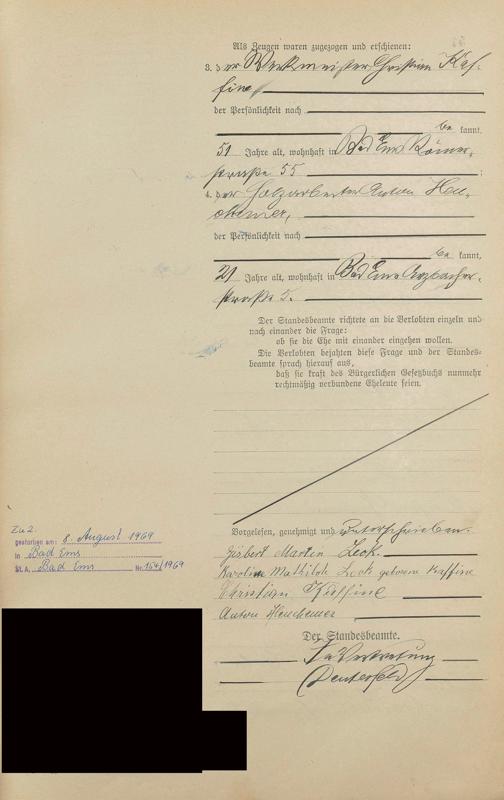 Als Zeugen waren zugezogen und erschienen:
3. der Werkmeister Christian Kaf-
fine
der Persönlichkeit nach
be kannt,
51 Jahre alt, wohnhaft in Bad Ems Römer-
straße 55
4. der Holzarbeiter Anton Heu-
chemer,
der Persönlichkeit nach
be kannt,
21 Jahre alt, wohnhaft in Bad Ems Arzbacher-
straße 5.
Der Standesbeamte richtete an die Verlobten einzeln und
nach einander die Frage:
ob sie die Ehe mit einander eingehen wollen.
Die Verlobten bejahten diese Frage und der Standes-
beamte sprach hierauf aus,
daß sie kraft des Bürgerlichen Gesetzbuchs nunmehr
rechtmäßig verbundene Eheleute seien.
Vorgelesen, genehmigt und unterschrieben.
Martin Lock.
Karoline Mathilde Lock geborene Kaffine
Christian Kaffine
Anton Heuchemer
Der Standesbeamte.
In Vertretung
Zu 2.
gestorben am: 8. August 1969
in Bad Ems
St. A. Bad Ems Nr. 164/1969